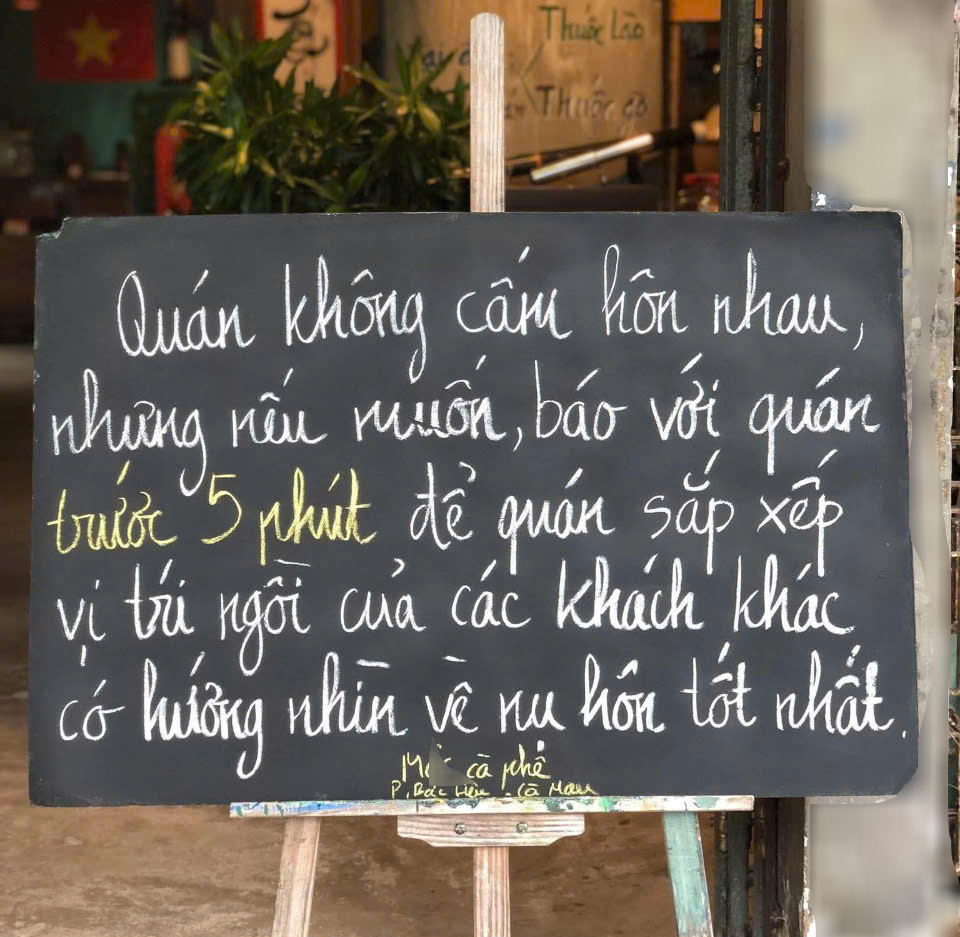 Thuốc Lào
Thuốc gò
Quán không cấm hôn nhau,
nhưng nếu muốn, báo với quán
trước 5 phút để quán sắp xếp
vị trí ngồi của các khách khác
có hướng nhìn về nụ hôn tốt nhất.
cà phê
P. Bạc Liêu - Cà Mau